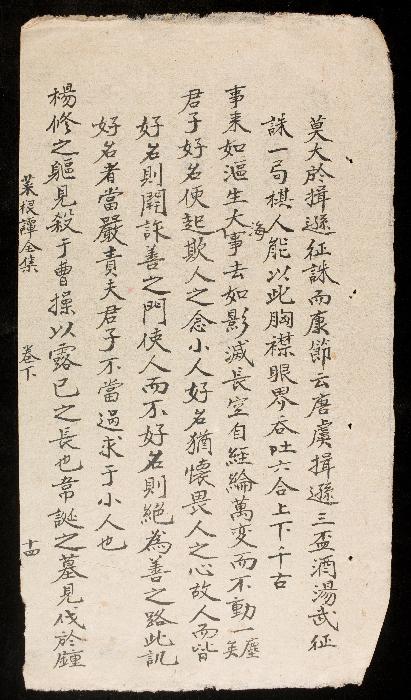 莫大於揖遜征誅而康節云唐虞揖遜三盃酒湯武征
誅一局棋人能以此胸襟眼界吞吐六合上下千古
事来如漚生大海事去如影滅長空自經綸萬変而不動一塵矣
君子好名便起欺人之念小人好名猶懐畏人之心故人而皆
好名則開詐善之門使人而不好名則絶為善之路此訊
好名者當嚴責夫君子不當過求于小人也
楊修之軀見殺于曹操以露已之長也韋誕之墓見伐於鍾
菜根譚全集 卷下 十四